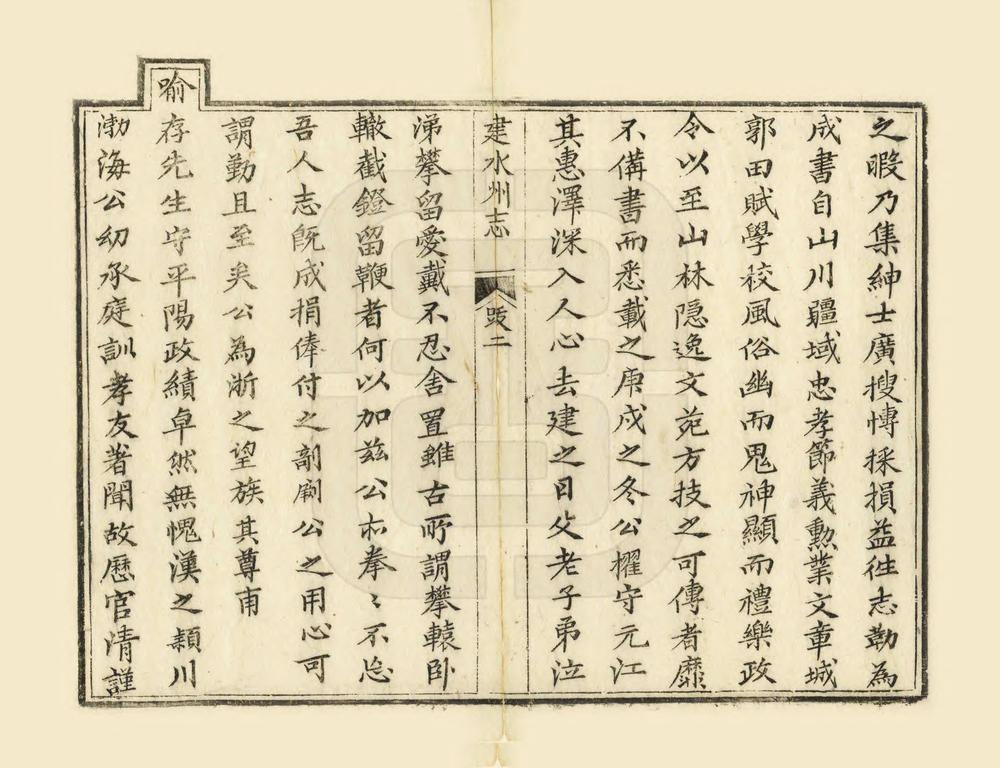 之暇乃集紳士廣搜愽採損益徃志勒為
成書自山川疆域忠孝節義勲業文章城
郭田賦學校風俗幽而鬼神顯而禮樂政
令以至山林隐逸文苑方技之可傳者靡
不備書而悉載之庚戌之冬公擢守元江
其惠澤深入人心去建之日父老子弟泣
建水州志 跋二
涕攀留愛戴不忍舍置雖古所謂攀轅卧
轍截鐙留鞭者何以加兹公亦拳〻不忘
吾人志既成捐俸付之剞劂公之用心可
謂勤且至矣公為浙之望族其尊甫
喻存先生守平陽政績卓然無愧漢之頴川
渤海公幼承庭訓孝友著聞故歷官清謹